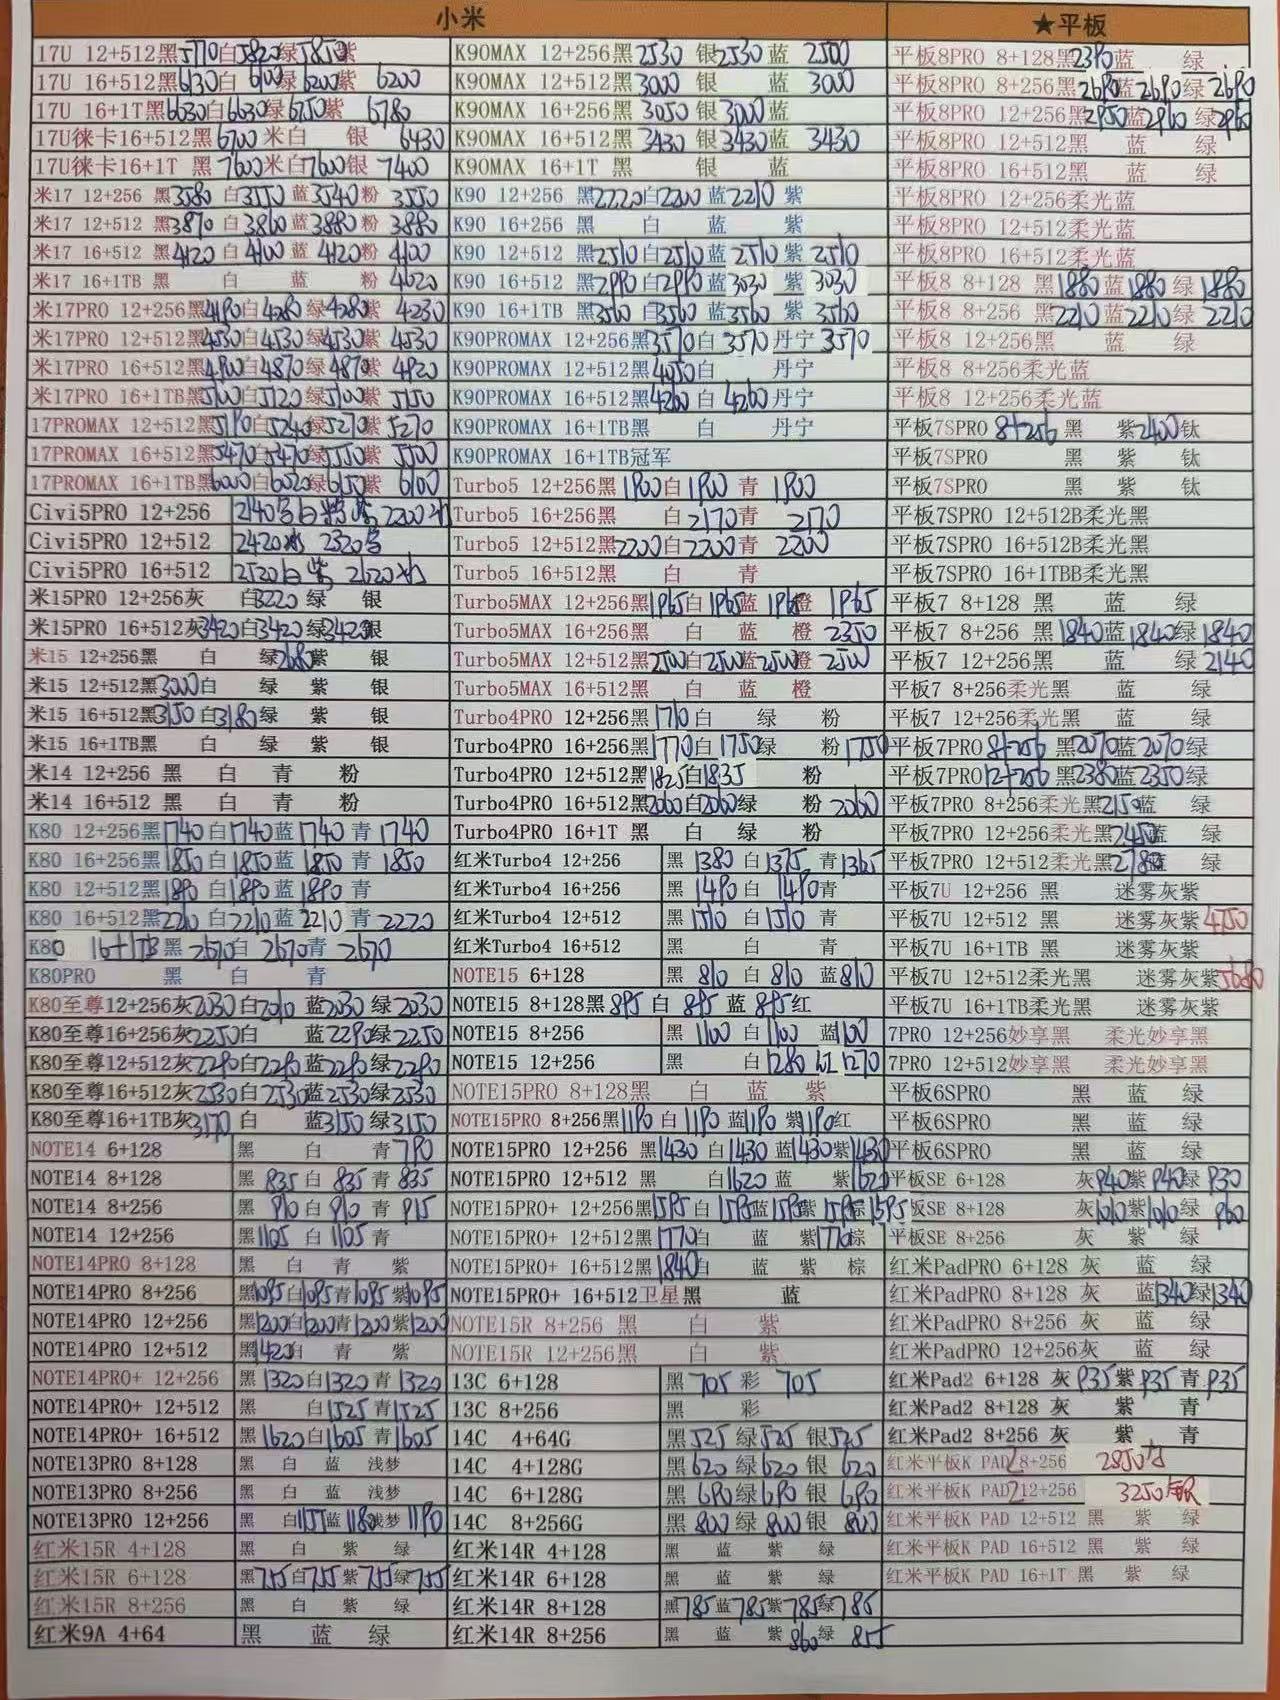 小米
17U 12+512黑5770白5820绿5850紫
17U 16+512黑6130白6100绿6200紫 6200
17U 16+1T黑6630白6630绿6750紫 6780
17U徕卡16+512黑6700米白 银 6430
17U徕卡16+1T 黑7600米白7600银 7400
米17 12+256 黑3580白3550蓝3540粉 3550
米17 12+512 黑3870白3860蓝3880粉 3880
米17 16+512 黑4120白4100蓝4120粉 4100
米17 16+1TB 黑 白 蓝 粉 4020
米17PRO 12+256黑4190白4280绿4280紫 4230
米17PRO 12+512黑4530白4530绿4530紫 4530
米17PRO 16+512黑4900白4870绿4870紫 4920
米17PRO 16+1TB黑5100白5120绿5100紫 5150
17PROMAX 12+512黑5190白5240绿5270紫 5270
17PROMAX 16+512黑5470白5470绿5550紫 5500
17PROMAX 16+1TB黑6000白6020绿6150紫 6100
Civi5PRO 12+256
Civi5PRO 12+512
Civi5PRO 16+512
米15PRO 12+256灰 白3220绿 银
米15PRO 16+512灰3420白3420绿3420银
米15 12+256黑 白 绿2680紫 银
米15 12+512黑3000白 绿 紫 银
米15 16+512黑3150白3180绿 紫 银
米15 16+1TB黑 白 绿 紫 银
米14 12+256 黑 白 青 粉
米14 16+512 黑 白 青 粉
K80 12+256黑1740白1740蓝1740青1740
K80 16+256黑1850白1850蓝1850青1850
K80 12+512黑1890白1890蓝1890青
K80 16+512黑2210白2210蓝2210青2220
K80 16+1TB黑2670白2670青2670
K80PRO 黑 白 青
K80至尊12+256灰2030白2010蓝2030绿2030
K80至尊16+256灰2250白 蓝2290绿2250
K80至尊12+512灰2290白2290蓝2290绿2290
K80至尊16+512灰2530白2530蓝2530绿2530
K80至尊16+1TB灰3170白 蓝3150绿3150
NOTE14 6+128 黑 白 青790
NOTE14 8+128 黑835白835青835
NOTE14 8+256 黑910白910青915
NOTE14 12+256 黑1105白1105青
NOTE14PRO 8+128 黑 白 青 紫
NOTE14PRO 8+256 黑1095白1095青1095紫1095
NOTE14PRO 12+256 黑1200白1200青1200紫1200
NOTE14PRO 12+512 黑1420白 青 紫
NOTE14PRO+ 12+256 黑1320白1320青1320
NOTE14PRO+ 12+512 黑 白1525青1525
NOTE14PRO+ 16+512 黑1620白1605青1605
NOTE13PRO 8+128 黑 白 蓝 浅梦
NOTE13PRO 8+256 黑 白 蓝 浅梦
NOTE13PRO 12+256 黑 白1155蓝1180浅梦1190
红米15R 4+128 黑 白 紫 绿
红米15R 6+128 黑755白755紫755绿755
红米15R 8+256 黑 白 紫 绿
红米9A 4+64 黑 蓝 绿
K90MAX 12+256黑2530 银2530蓝 2500
K90MAX 12+512黑3000 银 蓝 3000
K90MAX 16+256黑3050银3000蓝
K90MAX 16+512黑3430银3430蓝3430
K90MAX 16+1T 黑 银 蓝
K90 12+256 黑2220白2200蓝2210紫
K90 16+256 黑 白 蓝 紫
K90 12+512 黑2510白2510蓝2510紫2510
K90 16+512 黑2990白2990蓝3030 紫3030
K90 16+1TB 黑3560白3560蓝3560紫3560
K90PROMAX 12+256黑3570白3570丹宁3570
K90PROMAX 12+512黑4050白 丹宁
K90PROMAX 16+512黑4260白4260丹宁
K90PROMAX 16+1TB黑 白 丹宁
K90PROMAX 16+1TB冠军
Turbo5 12+256黑1900白1900青1900
Turbo5 16+256黑 白2170青2170
Turbo5 12+512黑2200白2200青2200
Turbo5 16+512黑 白 青
Turbo5MAX 12+256黑1965白1965蓝1965橙1965
Turbo5MAX 16+256黑 白 蓝 橙2350
Turbo5MAX 12+512黑2500白2500蓝2500橙2500
Turbo5MAX 16+512黑 白 蓝 橙
Turbo4PRO 12+256黑1710白 绿 粉
Turbo4PRO 16+256黑1770白1750绿 粉1750
Turbo4PRO 12+512黑1825白1835 粉
Turbo4PRO 16+512黑2060白2060绿 粉2060
Turbo4PRO 16+1T 黑 白 绿 粉
红米Turbo4 12+256 黑1380白1375青1365
红米Turbo4 16+256 黑1490白1490青
红米Turbo4 12+512 黑1510白1510青
红米Turbo4 16+512 黑 白 青
NOTE15 6+128 黑810白810蓝810
NOTE15 8+128黑895白895蓝895红
NOTE15 8+256 黑1100白1100蓝1100
NOTE15 12+256 黑 白1280红1270
NOTE15PRO 8+128黑 白 蓝 紫
NOTE15PRO 8+256黑1190白1190蓝1190紫1190红
NOTE15PRO 12+256 黑1430白1430蓝1430紫1430
NOTE15PRO 12+512 黑 白1620蓝 紫1620
NOTE15PRO+ 12+256黑1595白1595蓝1595紫1595棕1595
NOTE15PRO+ 12+512黑1770白 蓝 紫1770棕
NOTE15PRO+ 16+512黑1840白 蓝 紫 棕
NOTE15PRO+ 16+512卫星黑 蓝
NOTE15R 8+256 黑 白 紫
NOTE15R 12+256黑 白 紫
13C 6+128 黑705彩705
13C 8+256 黑 彩
14C 4+64G 黑525绿525银525
14C 4+128G 黑620绿620银620
14C 6+128G 黑690绿690银690
14C 8+256G 黑800绿800银800
红米14R 4+128 黑 蓝 紫 绿
红米14R 6+128 黑 蓝 紫 绿
红米14R 8+128 黑785蓝785紫785绿785
红米14R 8+256 黑 蓝 紫860绿855
★平板
平板8PRO 8+128黑2390蓝 绿
平板8PRO 8+256黑2690蓝2690绿2690
平板8PRO 12+256黑2950蓝2960绿2960
平板8PRO 12+512黑 蓝 绿
平板8PRO 16+512黑 蓝 绿
平板8PRO 12+256柔光蓝
平板8PRO 12+512柔光蓝
平板8PRO 16+512柔光蓝
平板8 8+128 黑1880蓝1880绿1880
平板8 8+256 黑2210蓝2210绿2210
平板8 12+256黑 蓝 绿
平板8 8+256柔光蓝
平板8 12+256柔光蓝
平板7SPRO 8+256 黑 紫2400钛
平板7SPRO 黑 紫 钛
平板7SPRO 黑 紫 钛
平板7SPRO 12+512B柔光黑
平板7SPRO 16+512B柔光黑
平板7SPRO 16+1TBB柔光黑
平板7 8+128 黑 蓝 绿
平板7 8+256 黑1840蓝1840绿1840
平板7 12+256黑 蓝 绿2140
平板7 8+256柔光黑 蓝 绿
平板7 12+256柔光黑 蓝 绿
平板7PRO 8+256 黑2070蓝2070绿
平板7PRO 12+256黑2380蓝2350绿
平板7PRO 8+256柔光黑2150蓝 绿
平板7PRO 12+256柔光黑2450蓝 绿
平板7PRO 12+512柔光黑2780蓝 绿
平板7U 12+256 黑 迷雾灰紫
平板7U 12+512 黑 迷雾灰紫4750
平板7U 16+1TB 黑 迷雾灰紫
平板7U 12+512柔光黑 迷雾灰紫5680
平板7U 16+1TB柔光黑 迷雾灰紫
7PRO 12+256妙享黑 柔光妙享黑
7PRO 12+512妙享黑 柔光妙享黑
平板6SPRO 黑 蓝 绿
平板6SPRO 黑 蓝 绿
平板6SPRO 黑 蓝 绿
平板SE 6+128 灰940紫940绿930
板SE 8+128 灰1010紫1010绿960
平板SE 8+256 灰 紫 绿
红米PadPRO 6+128 灰 蓝 绿
红米PadPRO 8+128 灰 蓝1340绿1340
红米PadPRO 8+256 灰 蓝 绿
红米PadPRO 12+256灰 蓝 绿
红米Pad2 6+128 灰935紫935青935
红米Pad2 8+128 灰 紫 青
红米Pad2 8+256 灰 紫 青
红米平板K PAD2 8+256 2850
红米平板K PAD2 12+256 3250银
红米平板K PAD 12+512 黑 紫 绿
红米平板K PAD 16+512 黑 紫 绿
红米平板K PAD 16+1T 黑 紫 绿